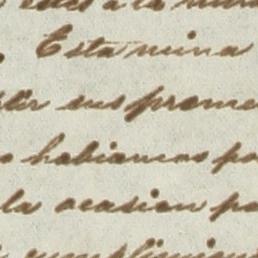 a la
Esta mina
sus prome
habiamos po
la ocasion pa